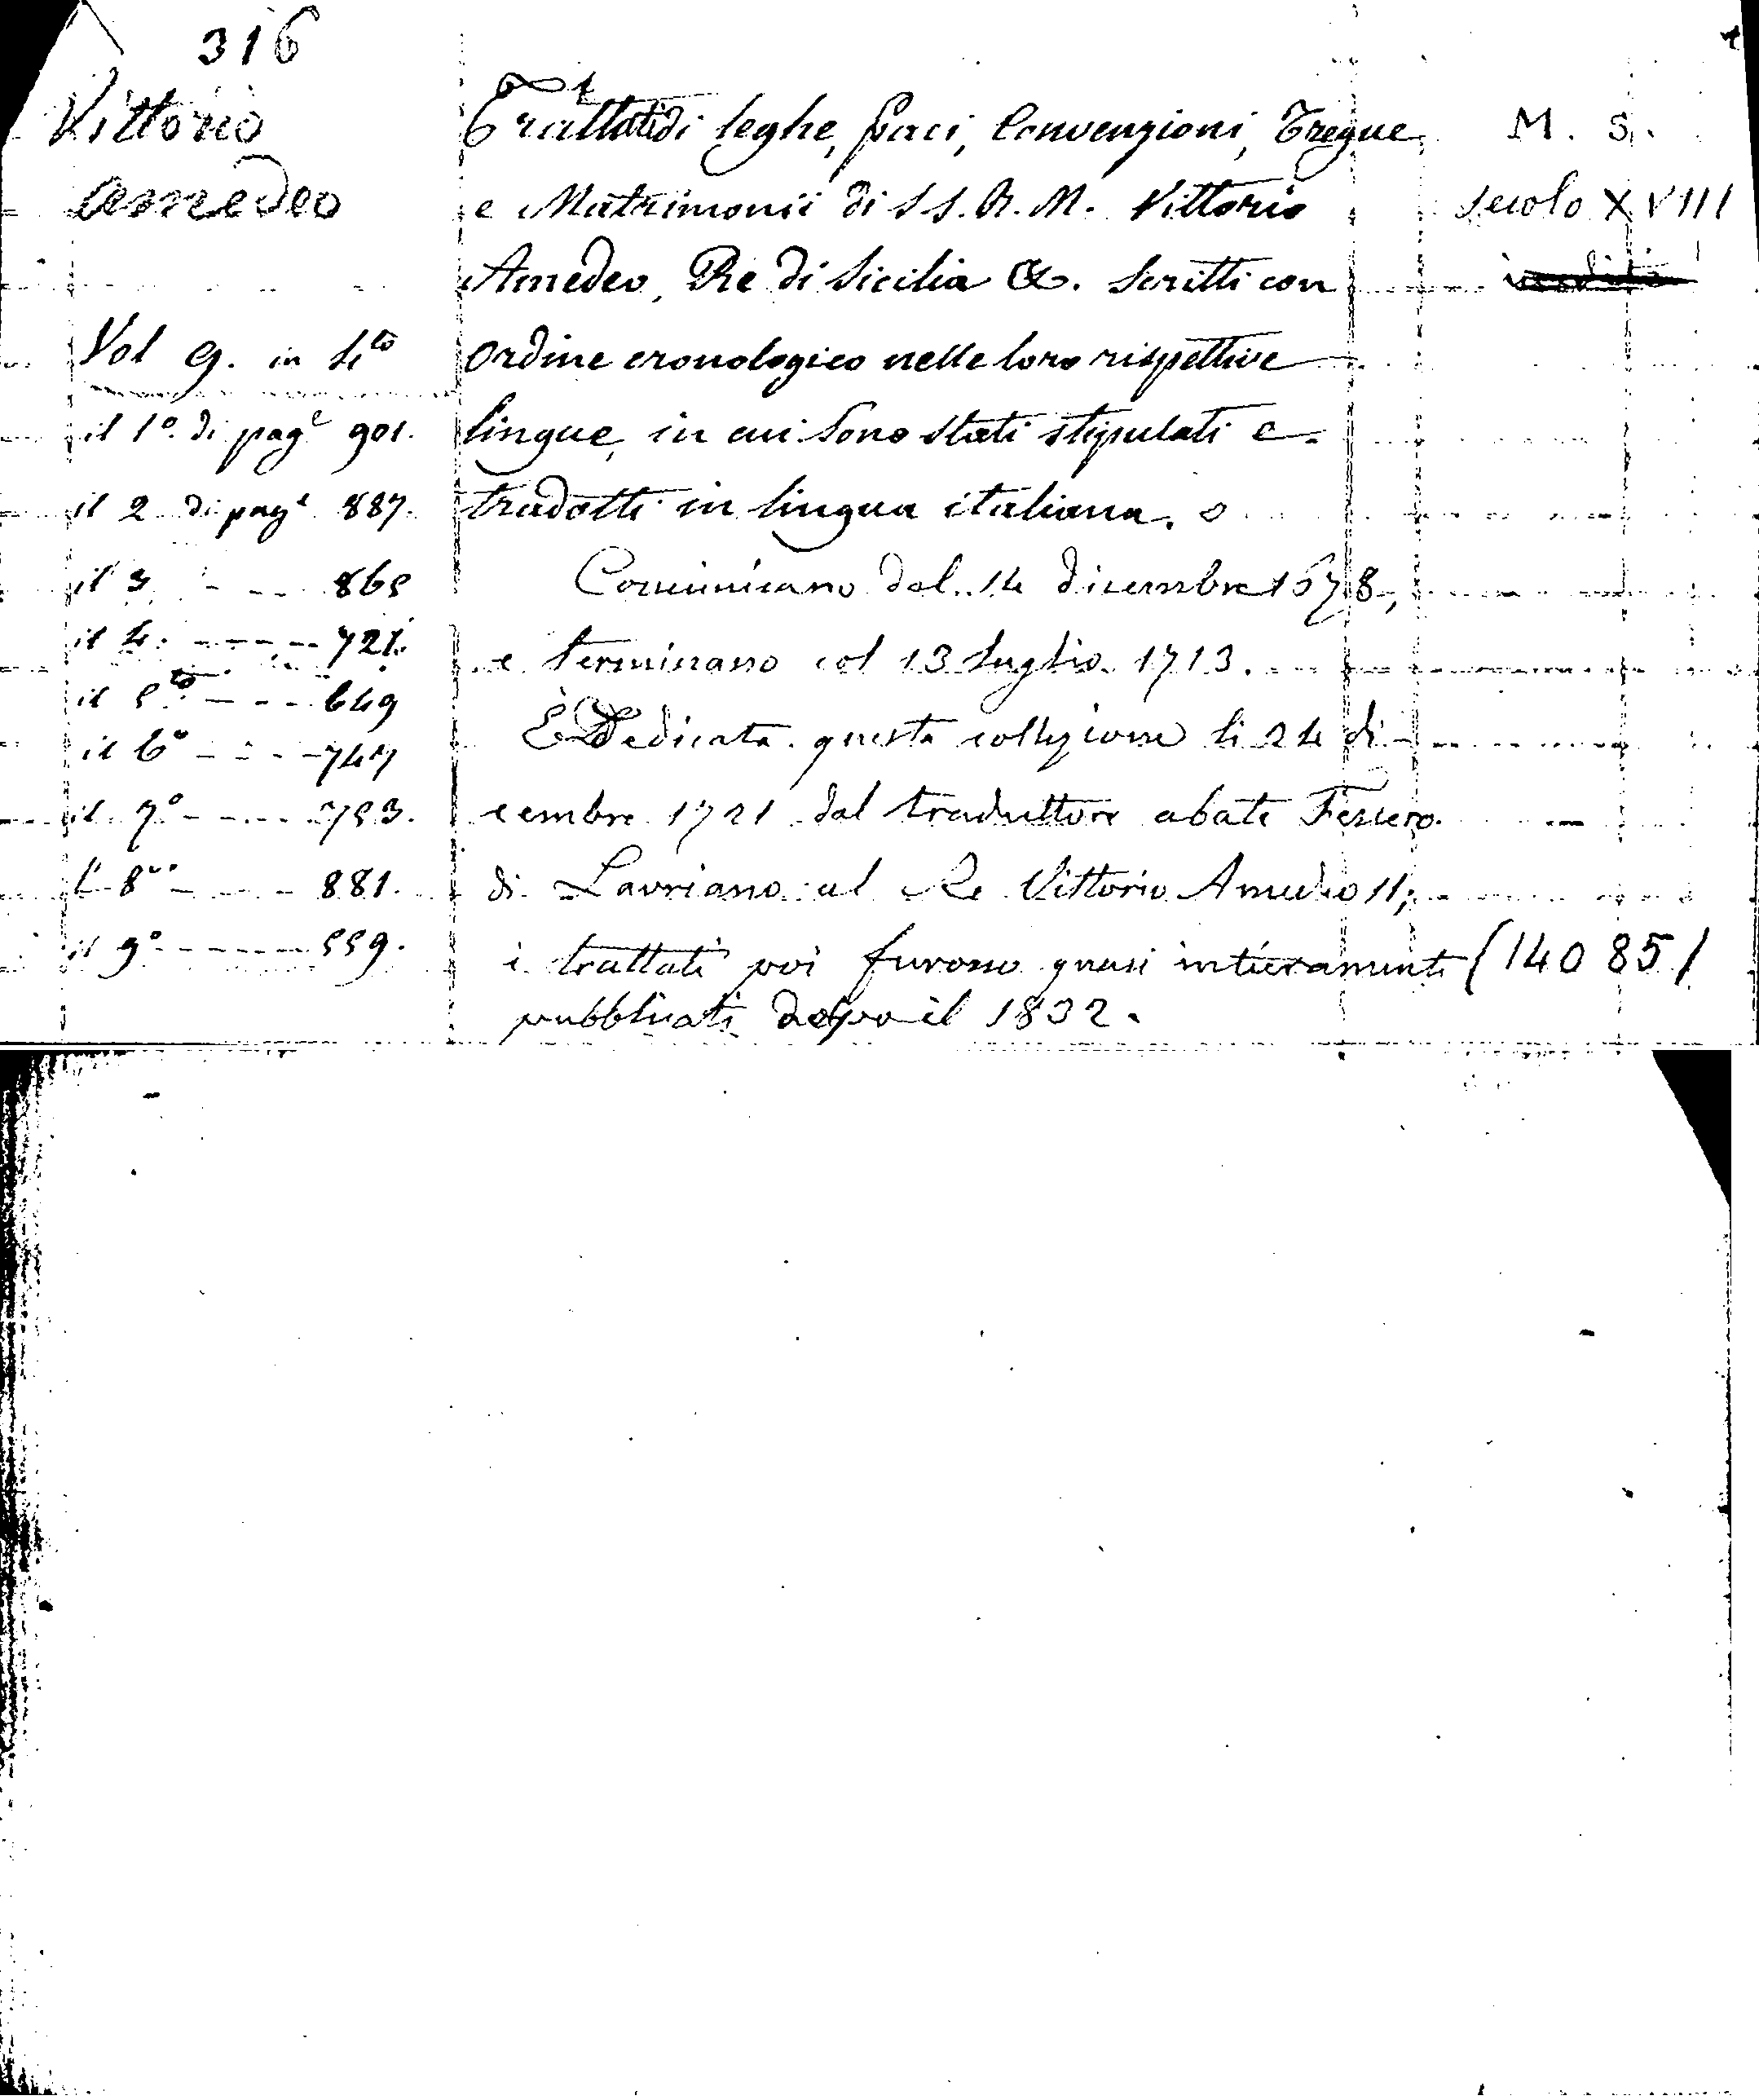 316
Vittorio
Amedeo
Vol 9. in 4.to
il 1.o di page 901.
il 2 di page 887.
il 3 - - - 865
il 4. - - - - - 721.
il 5.to - - - 649
il 6o - - - 747
il 7o - - - - 753.
l' 8vo - - - - 881.
il 9o - - - - - - 559.
Trattati di leghe, paci, Convenzioni, Tregue
e Matrimonii di S S. R. M. Vittorio
Amedeo, Re di Sicilia &. Scritti con
ordine cronologico nelle loro rispettive
lingue, in cui sono stati stipulati e
tradotti in lingua italiana.
Cominciano dal 14 dicembre 1678,
e terminano col 13 luglio 1713.
È Dedicata questa collezione li 24 di
cembre 1721 dal traduttore abate Ferrero
di Lavriano al Re Vittorio Amedeo II;
i trattati poi furono quasi intieramente
pubblicati dopo il 1832.
M. S.
Secolo XVIII
(14085)